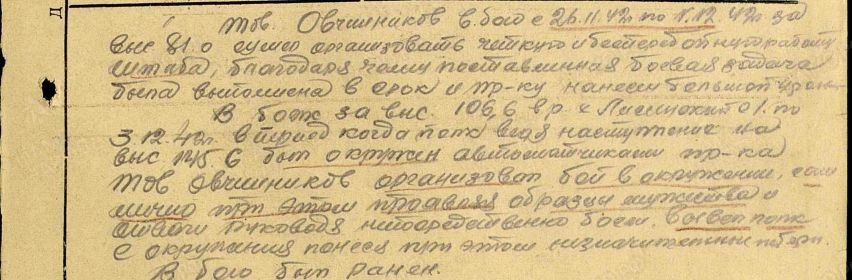 Тов. Овчинников в бою с 26.11.42г по 1.12.42г за
выс 81.0 сумел организовать четкую и бесперебойную работу
штаба, благодаря чему поставленная боевая задача
была выполнена в срок и пр-ку нанесен большой урон.
В боях за выс. 106,6 в р. х Лисинский 1. по
3.12.42г. в период когда полк вел наступление на
выс 145.6 был окружен автоматчиками пр-ка
Тов Овчинников организовал бой в окружении,
лично при этом проявляя образцы мужества и
отваги руководя непосредственно боем. Вывел полк
с окружения понеся при этом незначительные потери.
В бою был ранен.
Д